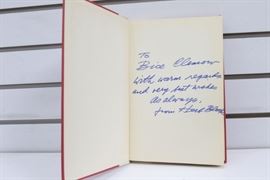 To
Bice Clemow
with warm regards
and very best wishes
as always,
from Herb